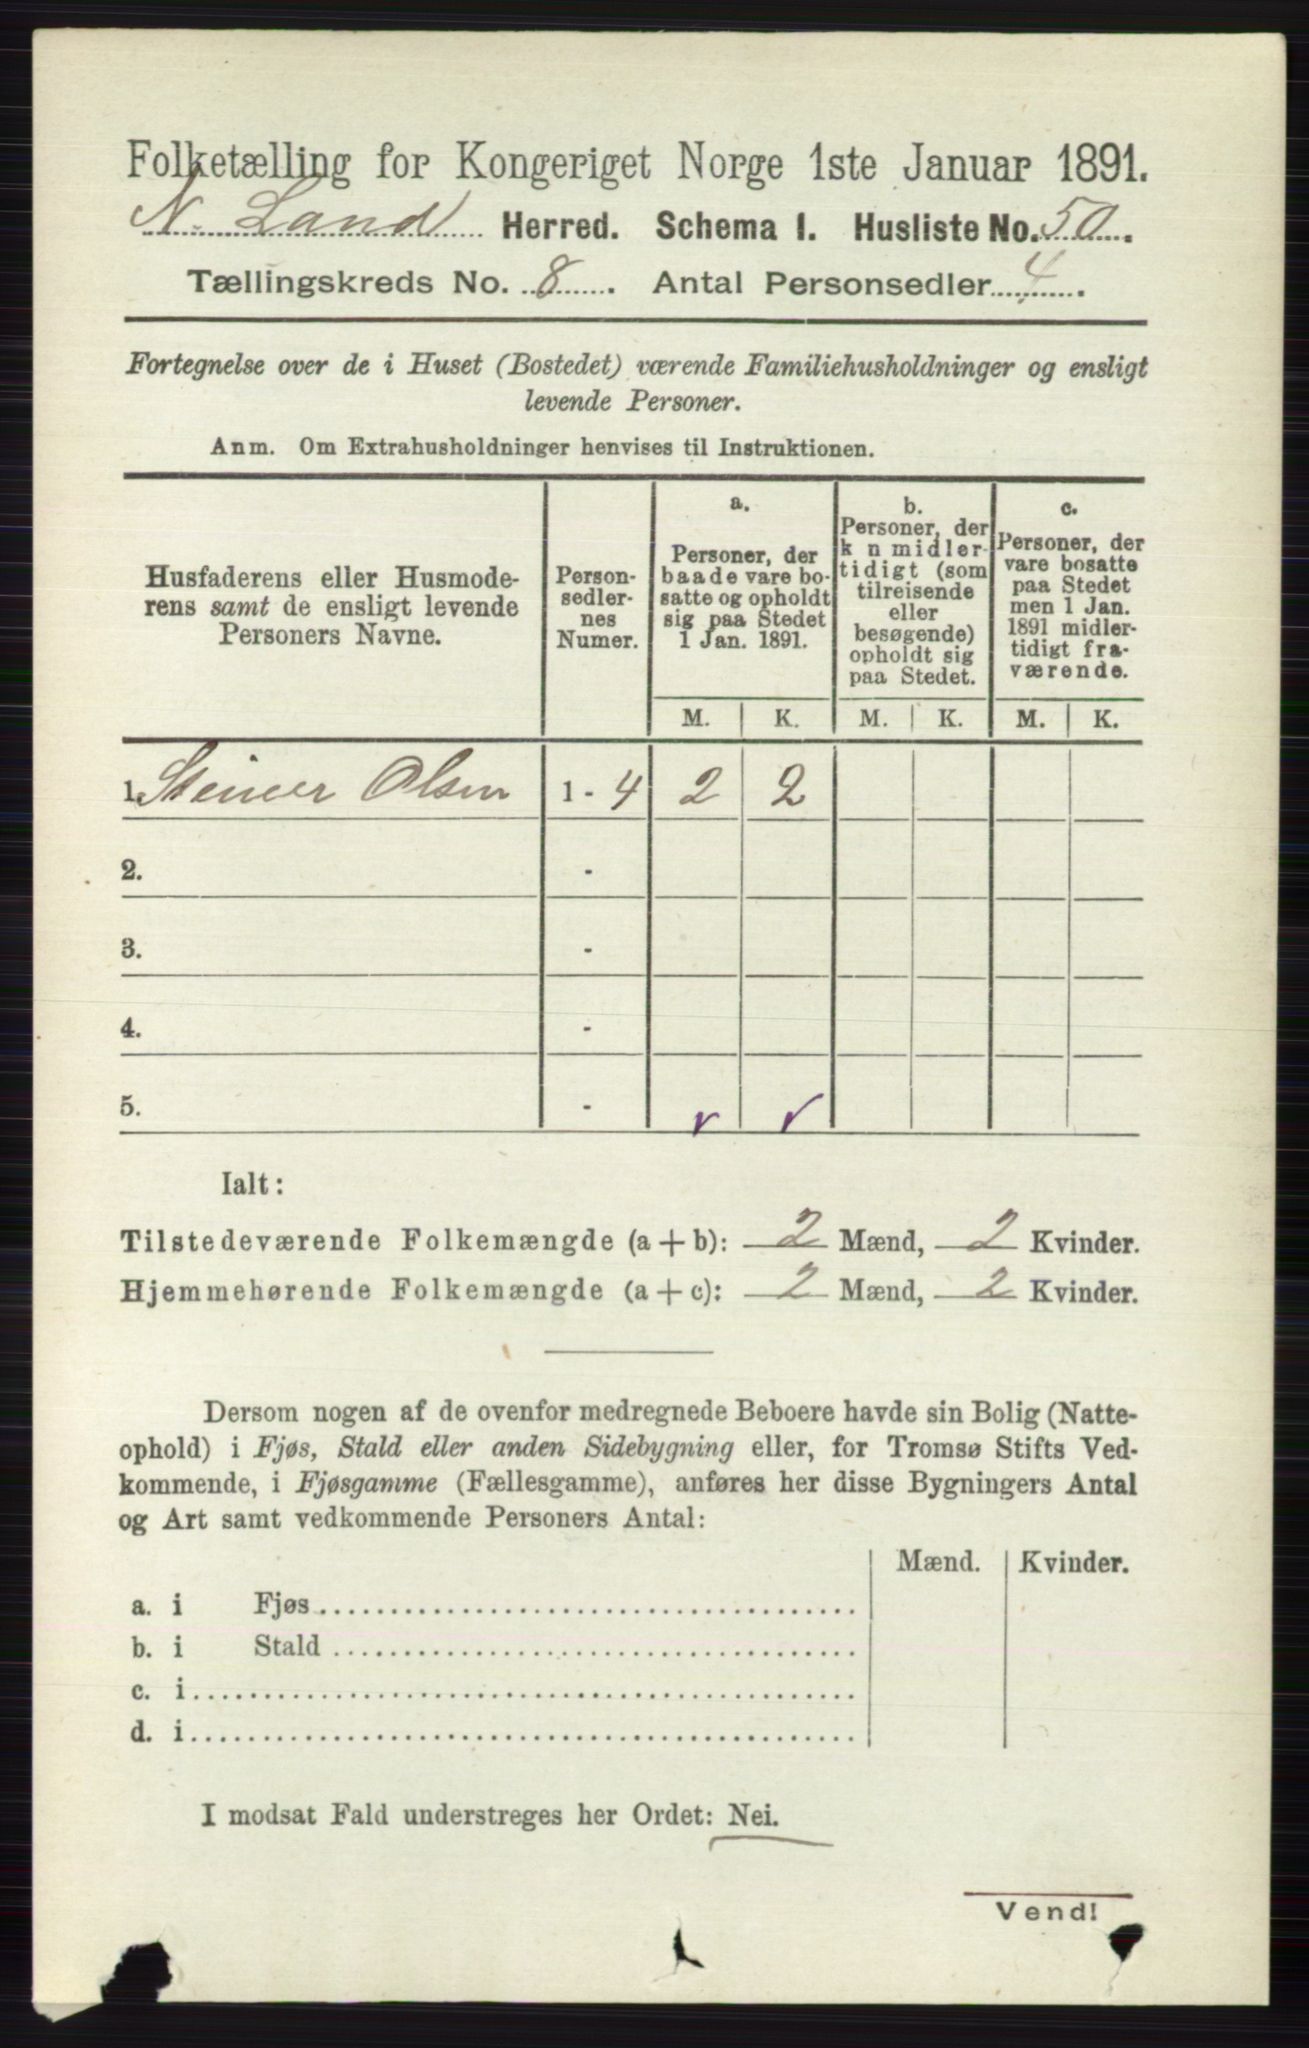 Folketælling for Kongeriget Norge 1ste Januar 1891.
N. Land Herred. Schema 1. Husliste No. 50.
Tællingskreds No. 8. Antal Personsedler 4.
Fortegnelse over de i Huset (Bostedet) værende Familiehusholdninger og ensligt
levende Personer.
Anm. Om Extrahusholdninger henvises til Instruktionen.
Husfaderens eller Husmode-
rens samt de ensligt levende
Personers Navne.
Person-
sedler-
nes
Numer.
a.
Personer, der
baade vare bo-
satte og opholdt
sig paa Stedet
1 Jan. 1891.
b.
Personer, der
k n midler-
tidigt (som
tilreisende
eller
besøgende)
opholdt sig
paa Stedet.
c.
Personer, der
vare bosatte
paa Stedet
men 1 Jan.
1891 midler-
tidigt fra-
værende.
M. K. M. K. M. K.
1. Olsen 1 - 4 2 2
2. -
3. -
4. -
5. -
Ialt:
Tilstedeværende Folkemængde (a + b): 2 Mænd, 2 Kvinder.
Hjemmehørende Folkemængde (a + c): 2 Mænd, 2 Kvinder.
Dersom nogen af de ovenfor medregnede Beboere havde sin Bolig (Natte-
ophold) i Fjøs, Stald eller anden Sidebygning eller, for Tromsø Stifts Ved-
kommende, i Fjøsgamme (Fællesgamme), anføres her disse Bygningers Antal
og Art samt vedkommende Personers Antal:
Mænd. Kvinder.
a. i Fjøs
b. i Stald
c. i
d. i
I modsat Fald understreges her Ordet: Nei.
Vend!